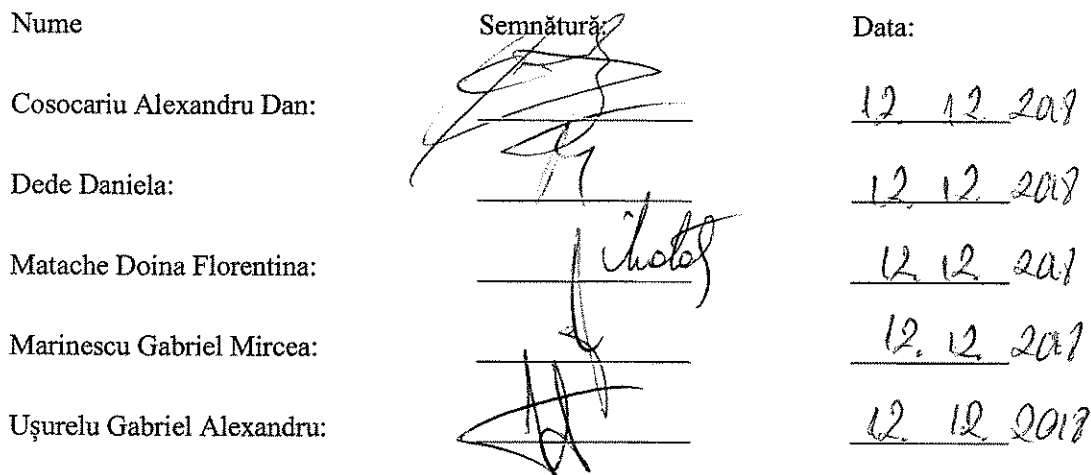 Nume Semnătură: Data:
Cosocariu Alexandru Dan: 12. 12. 2018
Dede Daniela: 12. 12. 2018
Matache Doina Florentina: 12. 12. 2018
Marinescu Gabriel Mircea: 12. 12. 2018
Ușurelu Gabriel Alexandru: 12. 12. 2018